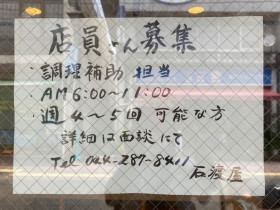 店員さん募集
・調理補助 担当
・AM6:00〜11:00
・週4〜5回 可能な方
詳細は面談にて
Tel 044-287-8411
石渡屋